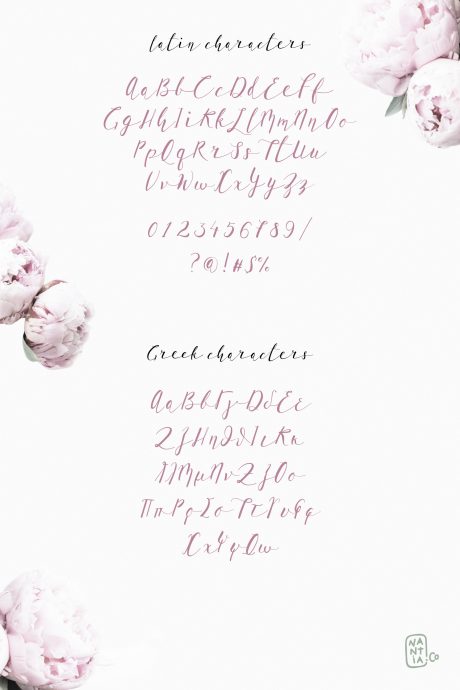 latin characters
AaBbCcDdEeFf
GgHhIiKkLlMmNnOo
PpQqRrSsTtUu
VvWwXxYyZz
0123456789/
?@!#$%
Greek characters
ΑαΒβΓγΔδΕε
ΖζΗηΘθΙιΚκ
ΛλΜμΝνΞξΟο
ΠπΡρΣσΤτΥυΦφ
ΧχΨψΩω
NA
NT
IA.Co